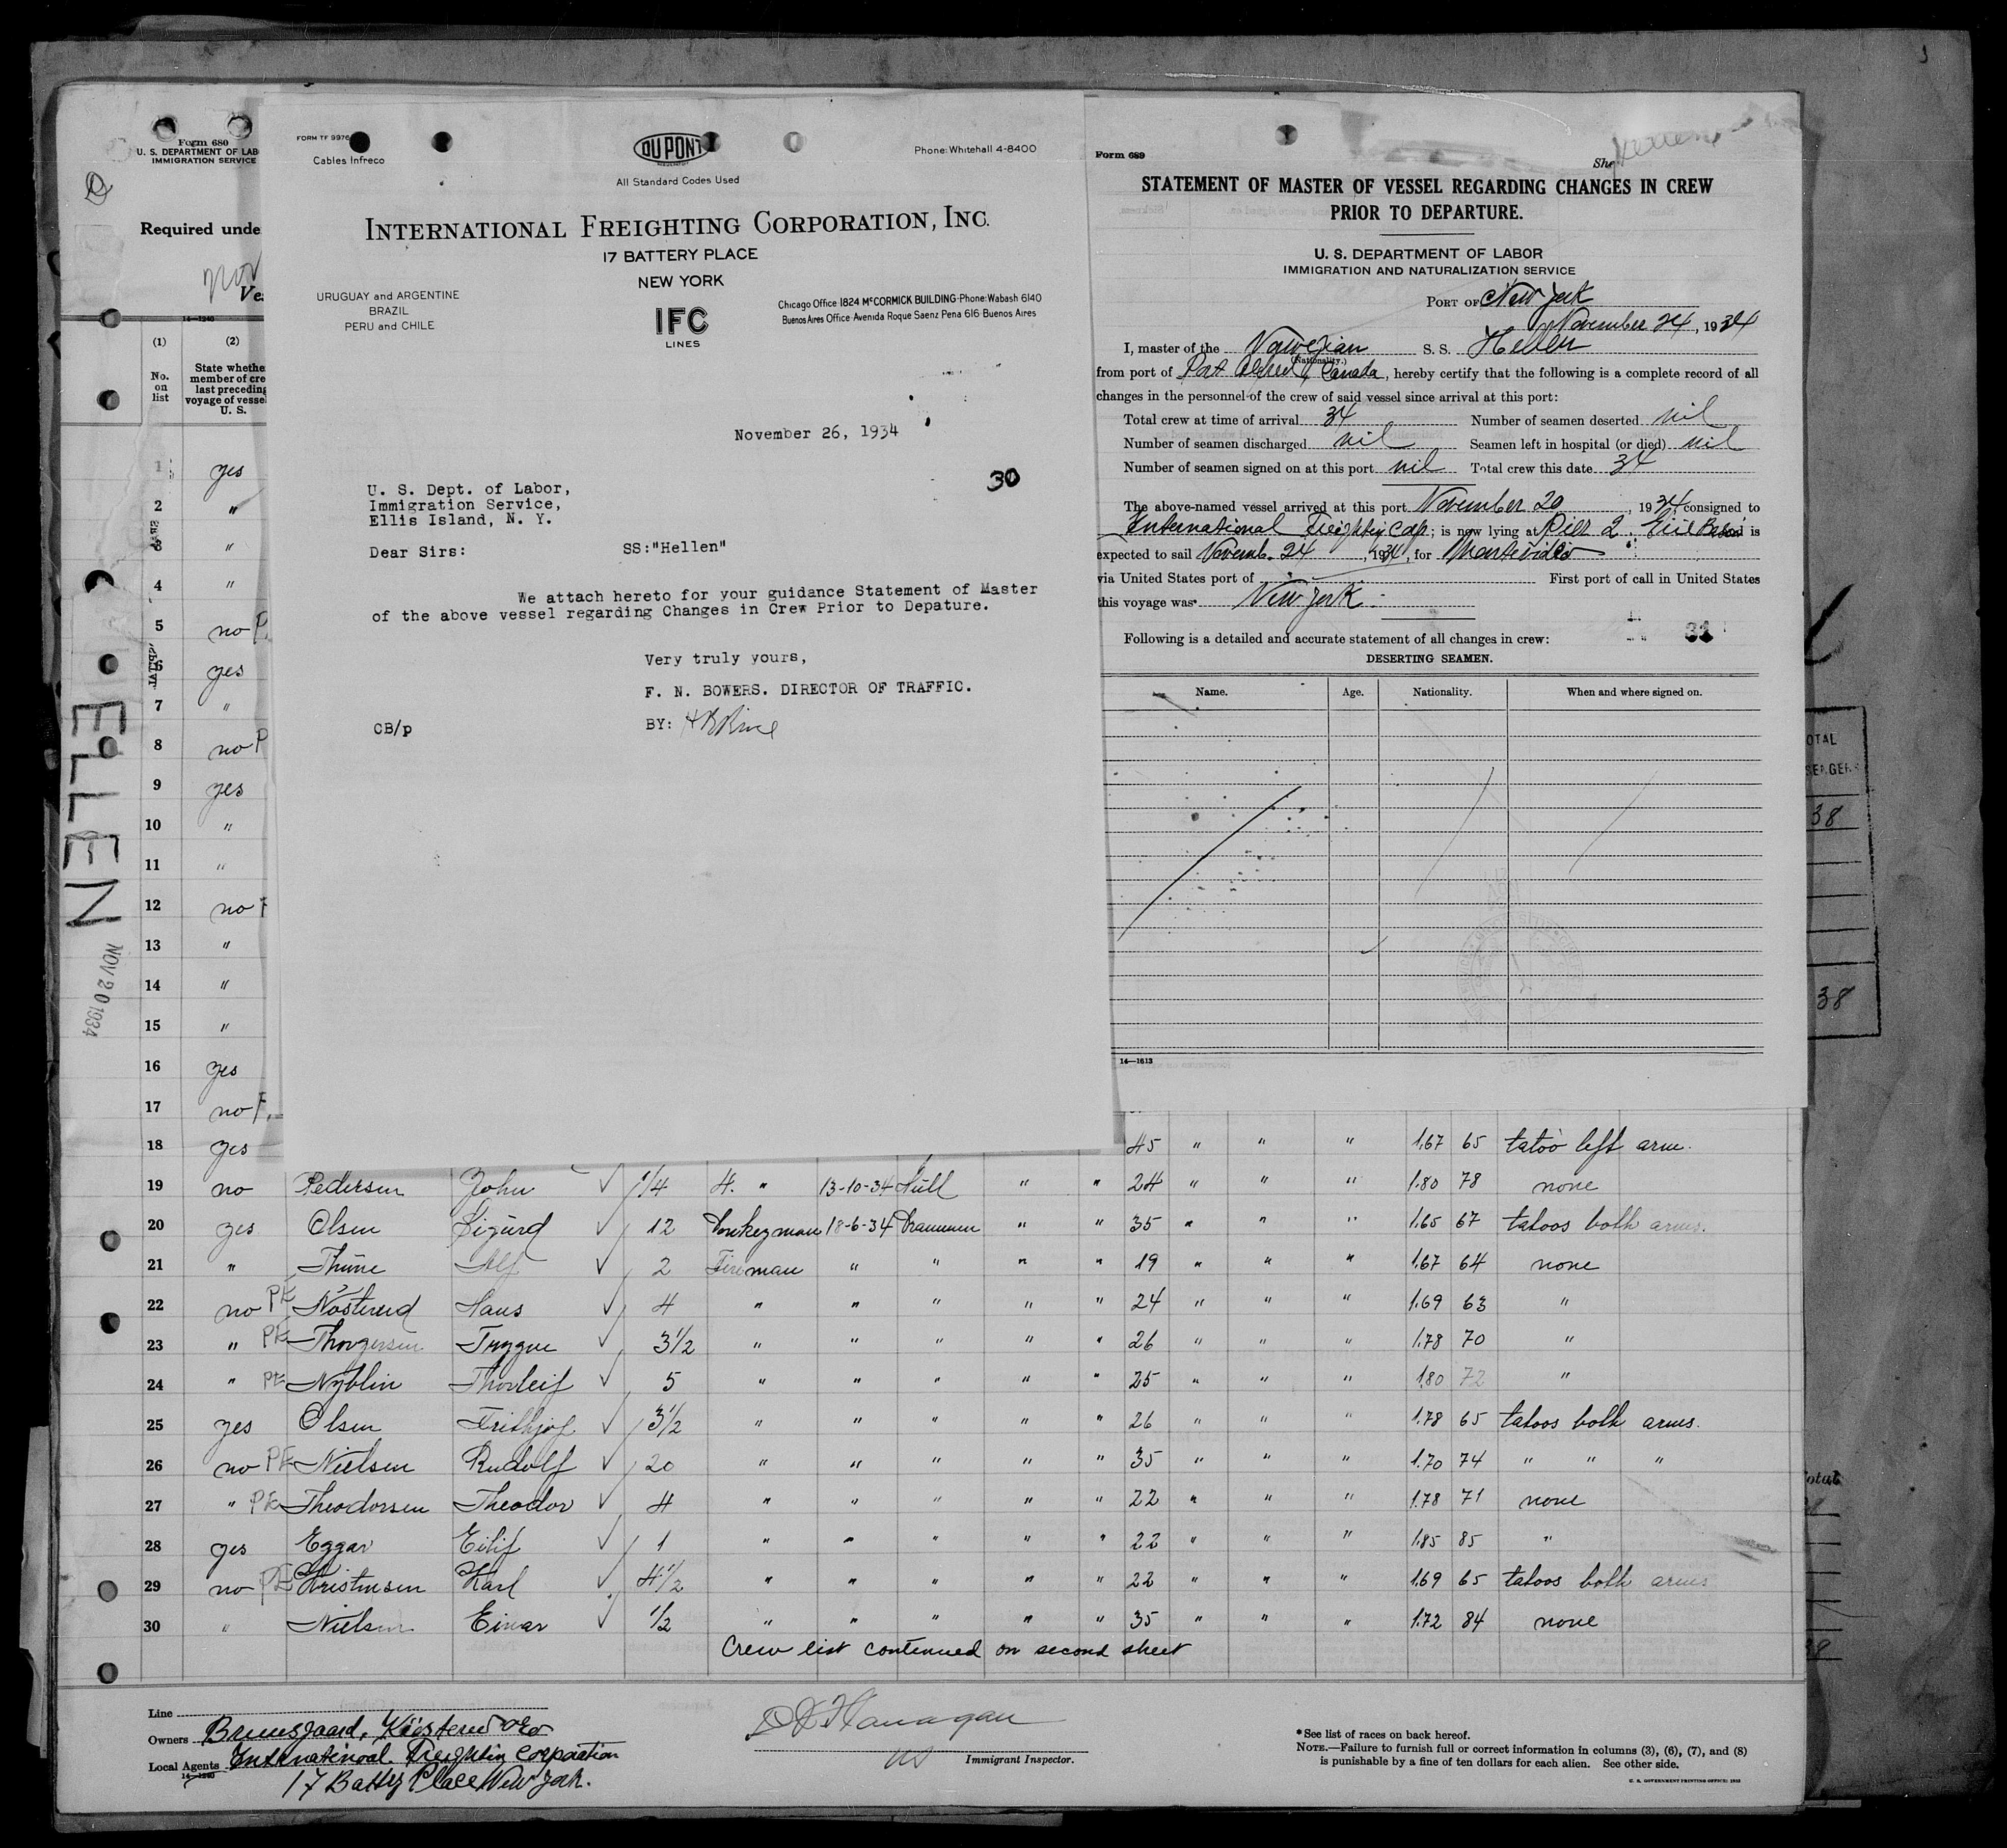 Form 680
U. S. DEPARTMENT OF LAB
IMMIGRATION SERVICE
Required unde
Nor
Ves
14-1240
(1) (2)
No. on list
State whethe
member of cre
last preceding
voyage of vesse
U. S.
1 yes
2 "
3 "
4 "
5 no P.
6 yes
7 "
8 no P
9 yes
10 "
11 "
12 no
13 "
14 "
15 "
16 yes
17 no
18 yes
ELLEN
NOV 20 1934
FORM TF 9976
Cables Infreco
DU PONT
All Standard Codes Used
Phone: Whitehall 4-8400
INTERNATIONAL FREIGHTING CORPORATION, INC.
17 BATTERY PLACE
NEW YORK
URUGUAY and ARGENTINE
BRAZIL
PERU and CHILE
IFC
LINES
Chicago Office 1824 McCORMICK BUILDING-Phone: Wabash 6140
Buenos Aires Office-Avenida Roque Saenz Pena 616 Buenos Aires
November 26, 1934
30
U. S. Dept. of Labor,
Immigration Service,
Ellis Island, N. Y.
Dear Sirs: SS:"Hellen"
We attach hereto for your guidance Statement of Master
of the above vessel regarding Changes in Crew Prior to Depature.
Very truly yours,
F. N. BOWERS. DIRECTOR OF TRAFFIC.
CB/p BY:
Form 689
She
STATEMENT OF MASTER OF VESSEL REGARDING CHANGES IN CREW
PRIOR TO DEPARTURE.
U. S. DEPARTMENT OF LABOR
IMMIGRATION AND NATURALIZATION SERVICE
PORT OF New York
November 24, 1934
I, master of the Norwegian S. S. Hellen
(Nationality.)
from port of Port Alfred, Canada, hereby certify that the following is a complete record of all
changes in the personnel of the crew of said vessel since arrival at this port:
Total crew at time of arrival 34 Number of seamen deserted nil
Number of seamen discharged nil Seamen left in hospital (or died) nil
Number of seamen signed on at this port nil Total crew this date 34
The above-named vessel arrived at this port November 20, 1934 consigned to
International Freighting Corp; is now lying at Pier 2, Erie Basin is
expected to sail Novemb. 24, 1934, for Montevideo
via United States port of First port of call in United States
this voyage was New York
Following is a detailed and accurate statement of all changes in crew: 31
DESERTING SEAMEN.
Name. Age. Nationality. When and where signed on.
14-1613
OTAL
SENGER
38
38
45 " " " 1.67 65 tatoo left arm.
19 no Pedersen John 1/4 H. " 13-10-34 Hull " " 24 " " " 1.80 78 none
20 yes Olsen Sigurd 12 Donkeyman 18-6-34 Drammen " " 35 " " " 1.65 67 tatoos both arms.
21 " Thune Alf 2 Fireman " " " " 19 " " " 1.67 64 none
22 no PE Hans 4 " " " " " 24 " " " 1.69 63 "
23 " PE Thorgersen Trygve 3 1/2 " " " " " 26 " " " 1.78 70 "
24 " PE Nyblin Thorleif 5 " " " " " 25 " " " 1.80 72 "
25 yes Olsen Frithjof 3 1/2 " " " " " 26 " " " 1.78 65 tatoos both arms.
26 no PE Nielsen Rudolf 20 " " " " " 35 " " " 1.70 74 " " "
27 " PE Theodorsen Theodor 4 " " " " " 22 " " " 1.78 71 none
28 yes Eggar Eilif 1 " " " " " 22 " " " 1.85 85 "
29 no PE Kristensen Karl 4 1/2 " " " " " 22 " " " 1.69 65 tatoos both arms
30 " Nielsen Einar 1/2 " " " " " 35 " " " 1.72 84 none
Crew list continued on second sheet
Line
Owners Bruusgaard, Kiøsterud & Co
Local Agents International Freighting Corporation
14-1240
17 Battery Place New York.
Flanagan
Immigrant Inspector.
*See list of races on back hereof.
NOTE.—Failure to furnish full or correct information in columns (3), (6), (7), and (8)
is punishable by a fine of ten dollars for each alien. See other side.
U. S. GOVERNMENT PRINTING OFFICE: 1933